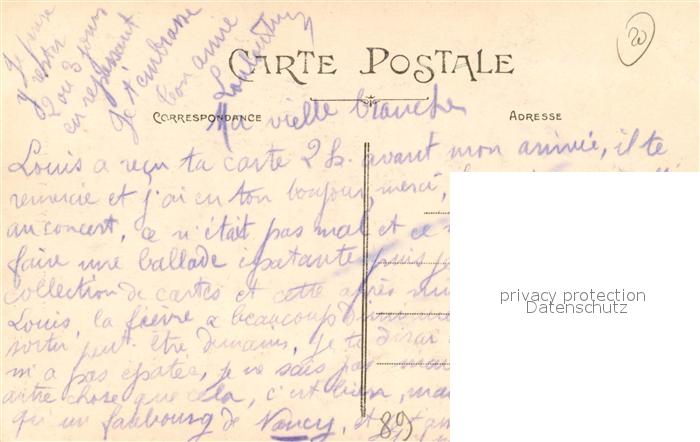 Je pense
y rester
2 ou 3 jours
en repassant
Je t'embrasse
ton amie
CARTE POSTALE
20
CORRESPONDANCE
ADRESSE
Ma vielle branche
Louis a reçu ta carte 2 h. avant mon arrivée, il te
remercie et j'ai eu ton bonjour, merci,
au concert, ce n'était pas mal et ce
faire une ballade épatante puis
collection de cartes et cette après
Louis, la fièvre a beaucoup
sortir peut être demain. Je te dirai
m'a pas épatée, je ne sais pas
autre chose que cela, c'est bien,
qu'un faubourg de Nancy, et
89
privacy protection
Datenschutz